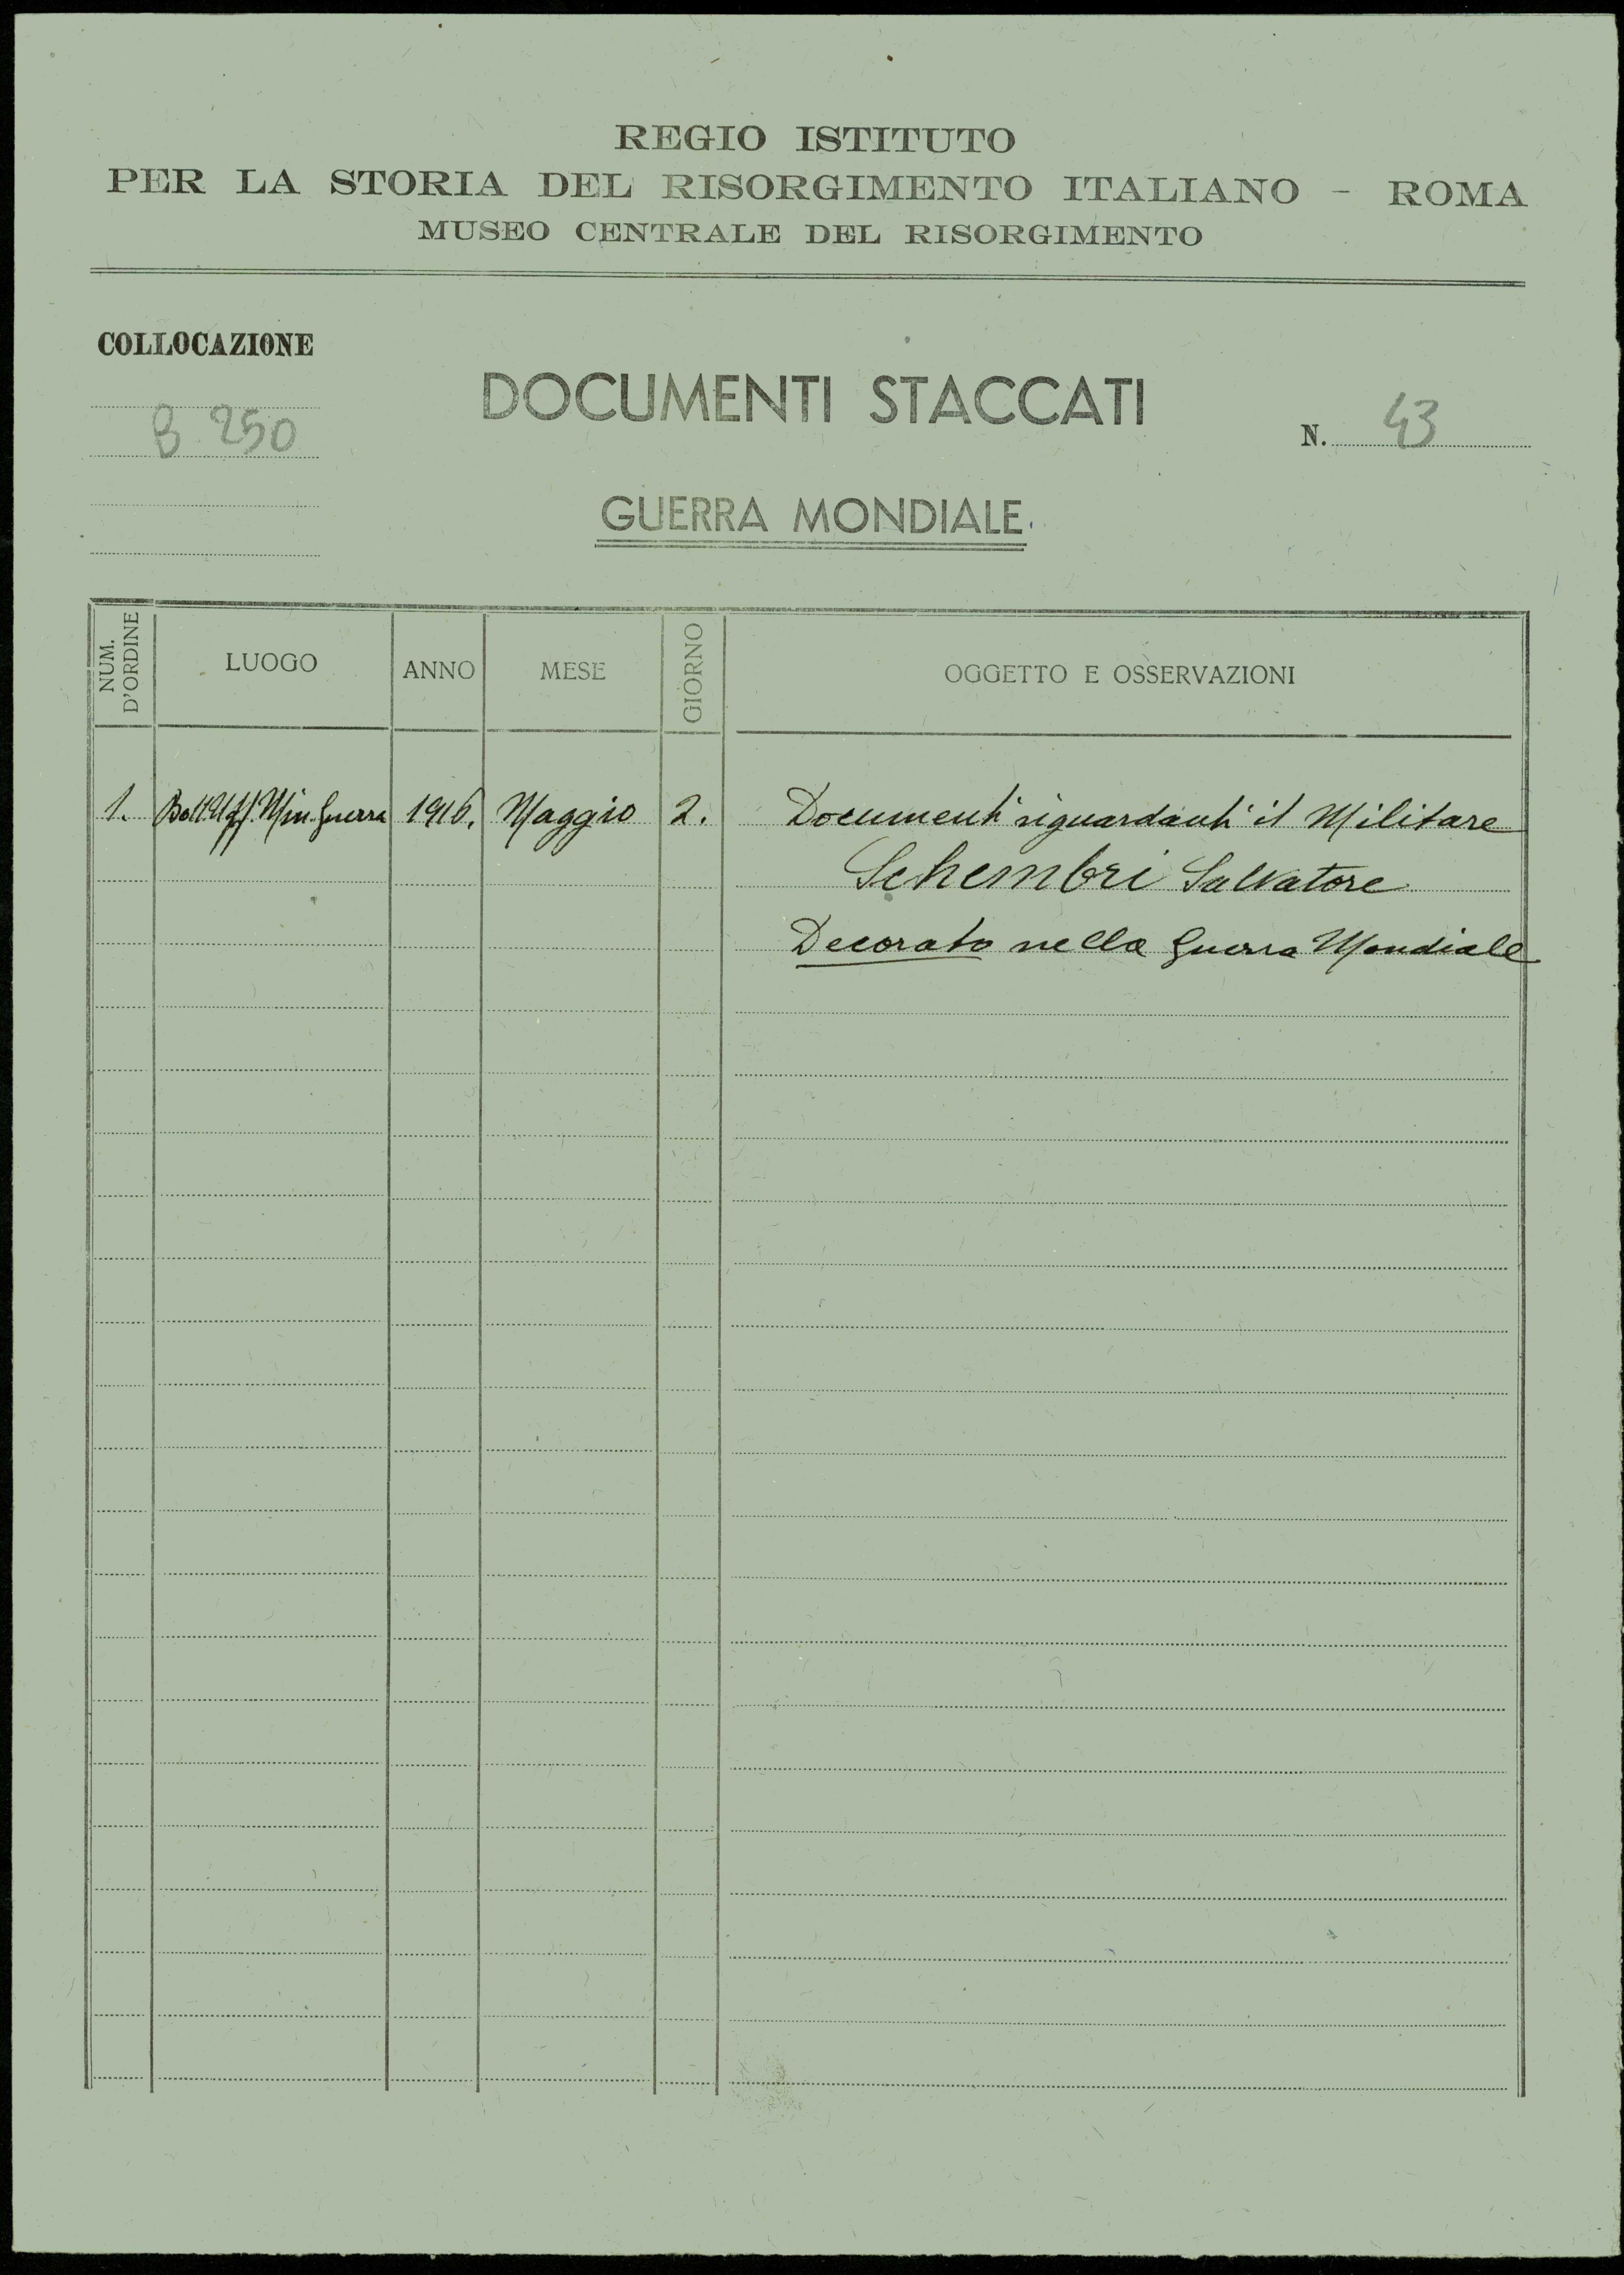 REGIO ISTITUTO
PER LA STORIA DEL RISORGIMENTO ITALIANO - ROMA
MUSEO CENTRALE DEL RISORGIMENTO
COLLOCAZIONE
B. 250
DOCUMENTI STACCATI
N. 43
GUERRA MONDIALE
NUM. D'ORDINE
LUOGO
ANNO
MESE
GIORNO
OGGETTO E OSSERVAZIONI
1. Boll. Uff. Min. Guerra 1916. Maggio 2. Documenti riguardanti il Militare
Schembri Salvatore
Decorato nella Guerra Mondiale